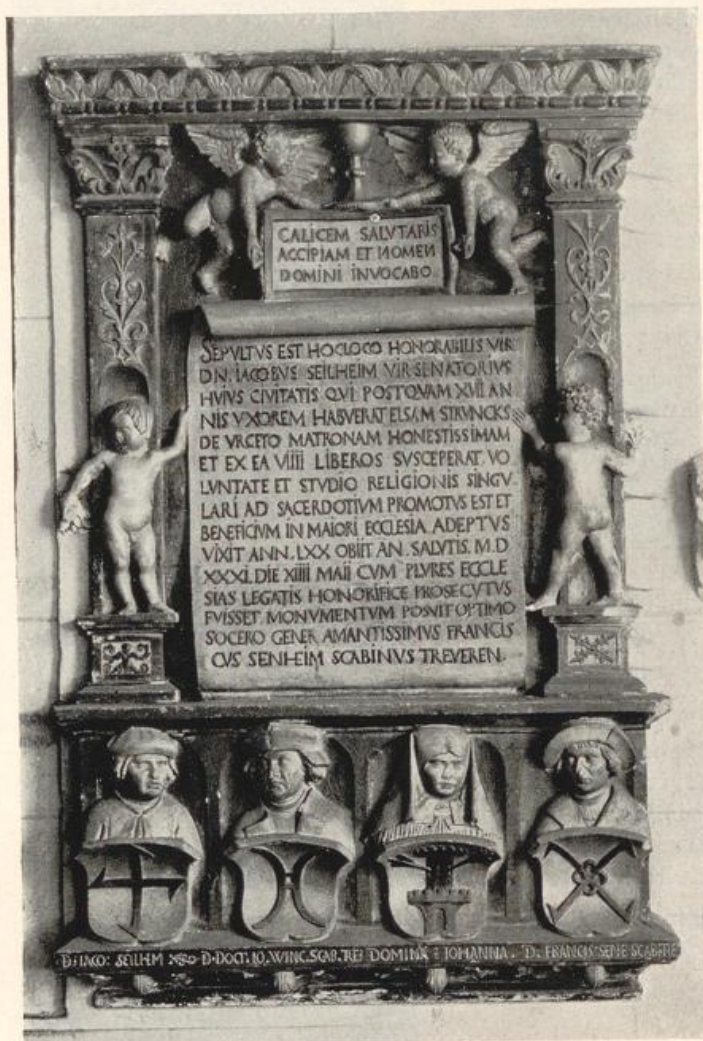 CALICEM SALVTARIS
ACCIPIAM ET NOMEN
DOMINI INVOCABO
SEPVLTVS EST HOC LOCO HONORABILIS VIR
DN. IACOBVS SEILHEIM VIR SENATORIVS
HVIVS CIVITATIS QVI POSTQVAM XVII AN
NIS VXOREM HABVERAT ELSAM STRVNCKS
DE VRCETO MATRONAM HONESTISSIMAM
ET EX EA VIIII LIBEROS SVSCEPERAT, VO
LVNTATE ET STVDIO RELIGIONIS SINGV
LARI AD SACERDOTIVM PROMOTVS EST ET
BENEFICIVM IN MAIORI ECCLESIA ADEPTVS
VIXIT ANN. LXX OBIIT AN. SALVTIS. M.D
XXXI. DIE XIIII MAII CVM PLVRES ECCLE
SIAS LEGATIS HONORIFICE PROSECVTVS
FVISSET MONVMENTVM POSVIT OPTIMO
SOCERO GENER AMANTISSIMVS FRANCIS
CVS SENHEIM SCABINVS TREVEREN.
D. IACO: SEILHEM D. DOCT. IO. WINC. SCAB. TRE DOMINA IOHANNA. D. FRANCIS SCAB. TRE